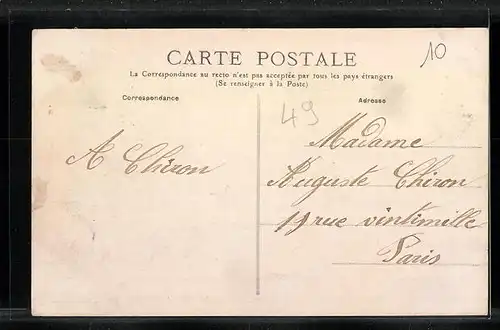 CARTE POSTALE
La Correspondance au recto n'est pas acceptée par tous les pays étrangers
(Se renseigner à la Poste)
Correspondance
Adresse
10
49
A Chiron
Madame
Auguste Chiron
19 rue vintimille
Paris